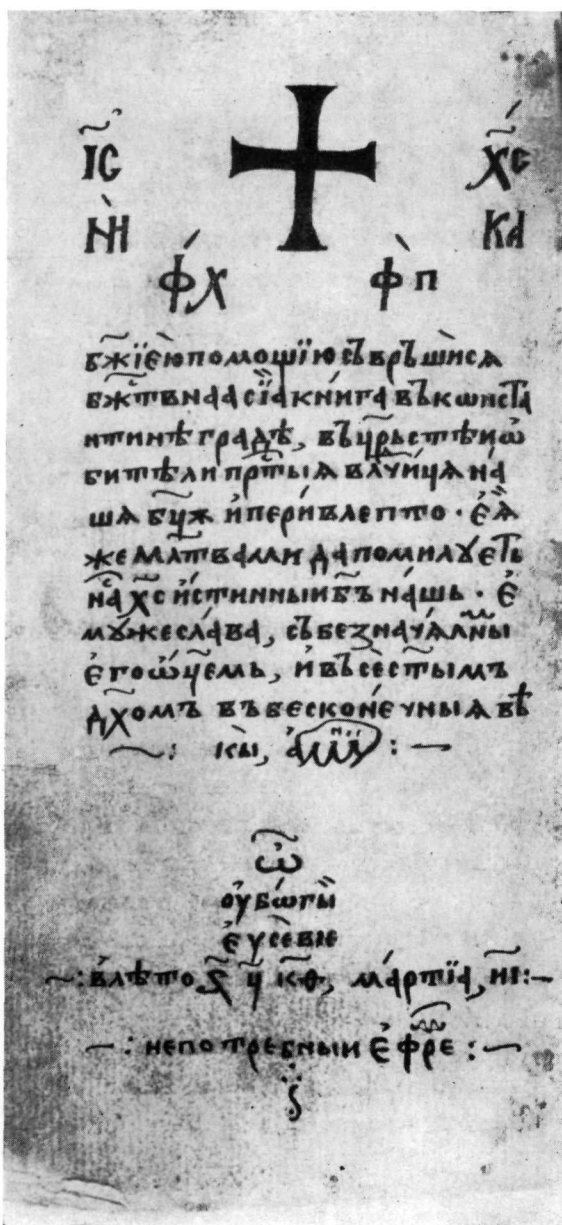 І҃С Х҃С
НИ КА
ФХ ФП
бж҃їею помощїю съврьшисѧ
бж҃твнаа сїа книга въ кѡнста
нтинѣ градѣ, въ цр҃ьстѣи ѡ
бители прт҃ыѧ влч҃ицѧ на
шѧ бц҃ж иперивлепто · еѧ
же мл҃твами да помилуеть
на х҃с истинныи б҃ъ нашь · е
муже слава, съ безначѧлны
его ѡц҃емь, и въсес҃тымъ
дх҃омъ въ бесконечныѧ вѣ
~: кы, амин :~
ѿ
оубѡгы
еусевіе
~: в лѣто ҂ѕ҃ ц҃ к҃ѳ, мартїа, и҃і :~
~: непотребныи ефре :~
ѕ